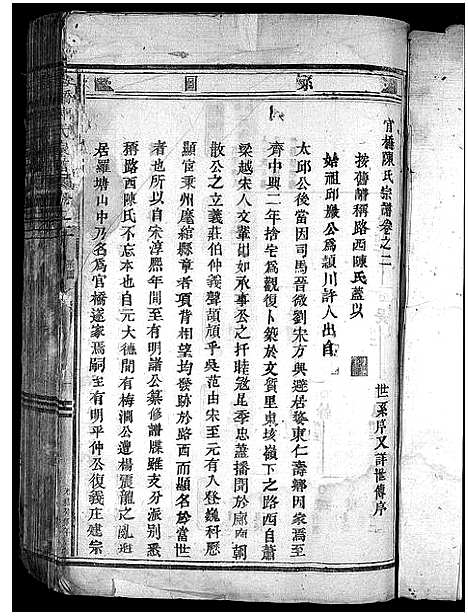 官橋陳氏宗譜卷之二
世系序又詳世傳序
按舊譜稱路西陳氏蓋以
始祖邱巖公為潁川許人出自
太邱公後當因司馬晉微劉宋方興避居婺東仁壽鄉因家焉至蕭
齊中興二年捨宅為觀復卜築於文賀里東垓嶺下之路西自蕭
梁越宋人文輩出如承事丞之扞睦寇忠季忠蓋播聞於廊廟朝
散公之立義莊伯仲義聲頡頏乎吳范由宋至元有人登巍科歷
顯官秉州麾綰縣章者項背相望均發跡於路西而顯名於當世
者也所以自宋淳熙年間至有明諸公纂修譜牒雖支分派別悉
稱路西陳氏不忘本也自元大德間有梅澗公遭楊震龍之亂遊
居羅塘山中乃名為官橋遂家焉嗣至有明平仲公復義庄建宗
系圖